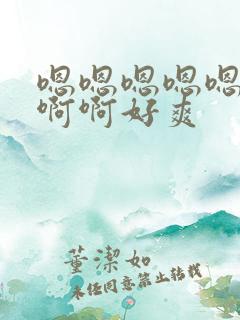 嗯嗯嗯嗯嗯
啊啊好爽
董潔如
未经同意禁止转载